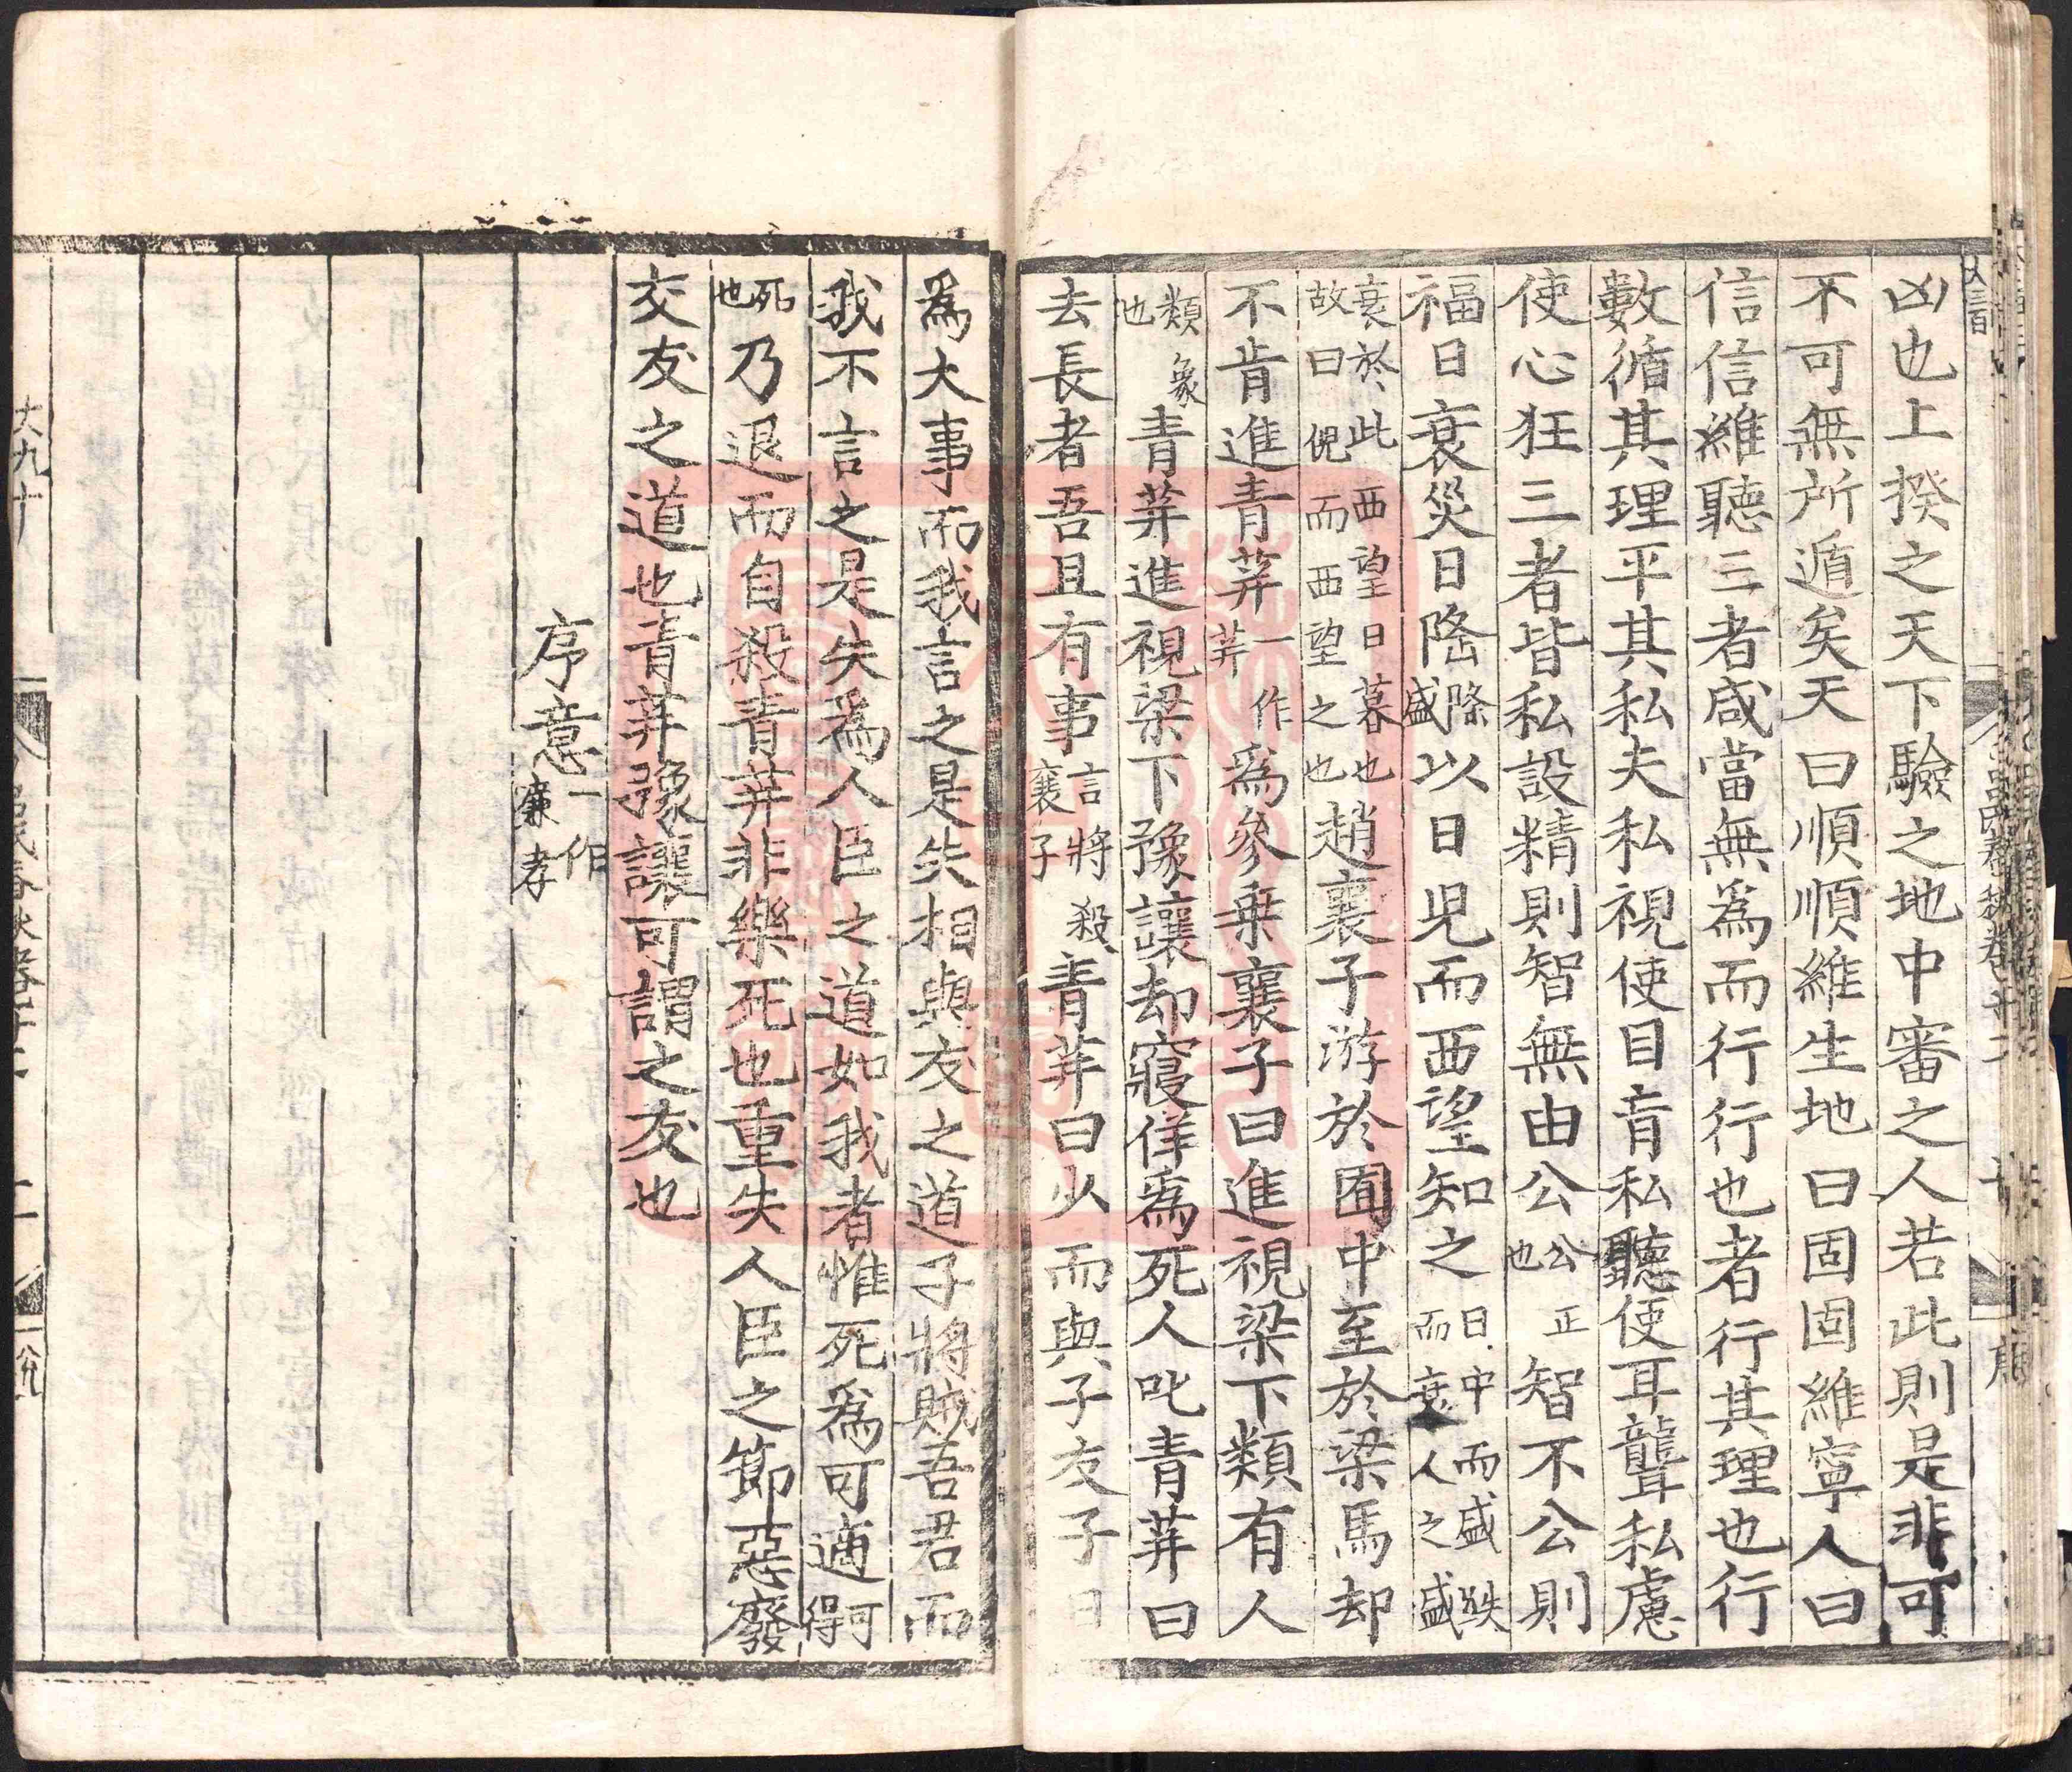 凶也上揆之天下驗之地中審之人若此則是非可
不可無所遁矣天曰順順維生地曰固固維寧人曰
信信維聽三者咸當無爲而行行也者行其理也行
數循其理平其私夫私視使目盲私聽使耳聾私慮
使心狂三者皆私設精則智無由公公正也智不公則
福日衰災日隆隆盛以日倪而西望知之日中而盛跌而衰人之盛
衰於此西望日暮也故曰倪而西望之也趙襄子游於囿中至於梁馬却
不肯進青荓一作荓爲參乗襄子曰進視梁下類有人
類象也青荓進視梁下豫讓却寢佯爲死人叱青荓曰
去長者吾且有事言將殺襄子青荓曰少而與子友子曰
爲大事而我言之是失相與友之道子將賊吾君而
我不言之是失爲人臣之道如我者惟死爲可適可得
死也乃退而自殺青荓非樂死也重失人臣之節惡廢
交友之道也青荓豫讓可謂之友也
序意一作廉孝